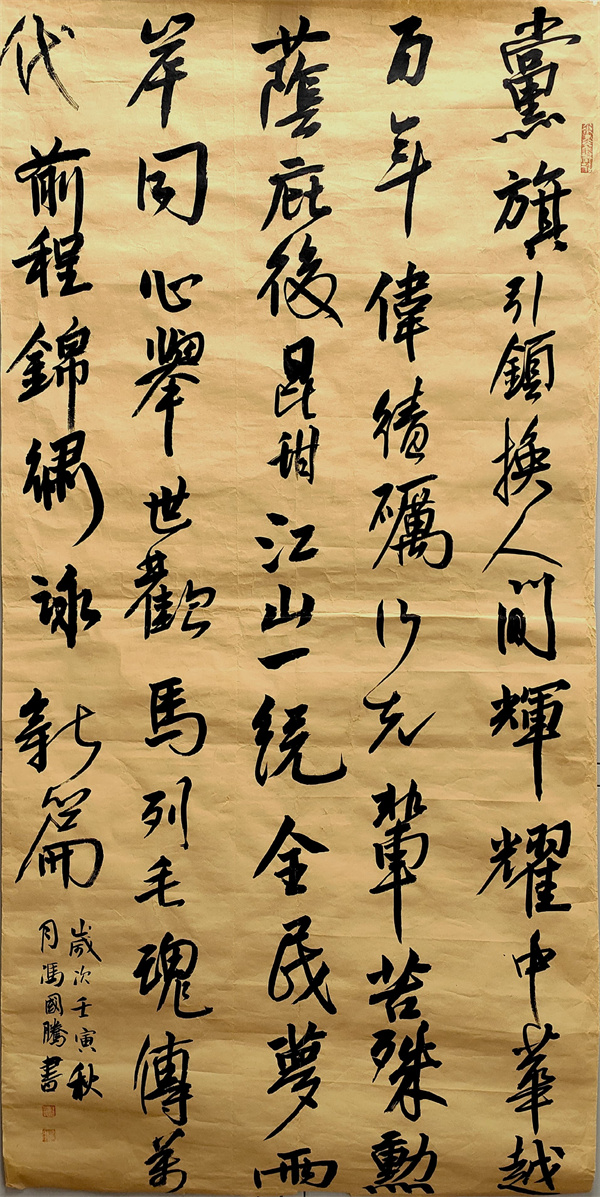 黨旗引領換人間輝耀中華越
百年偉績礪行先輩苦殊勳
蔭庇後昆甜江山一統全民夢兩
岸同心舉世歡馬列毛魂傳萬
代前程錦繡詠新篇
歲次壬寅秋
月馮國騰書